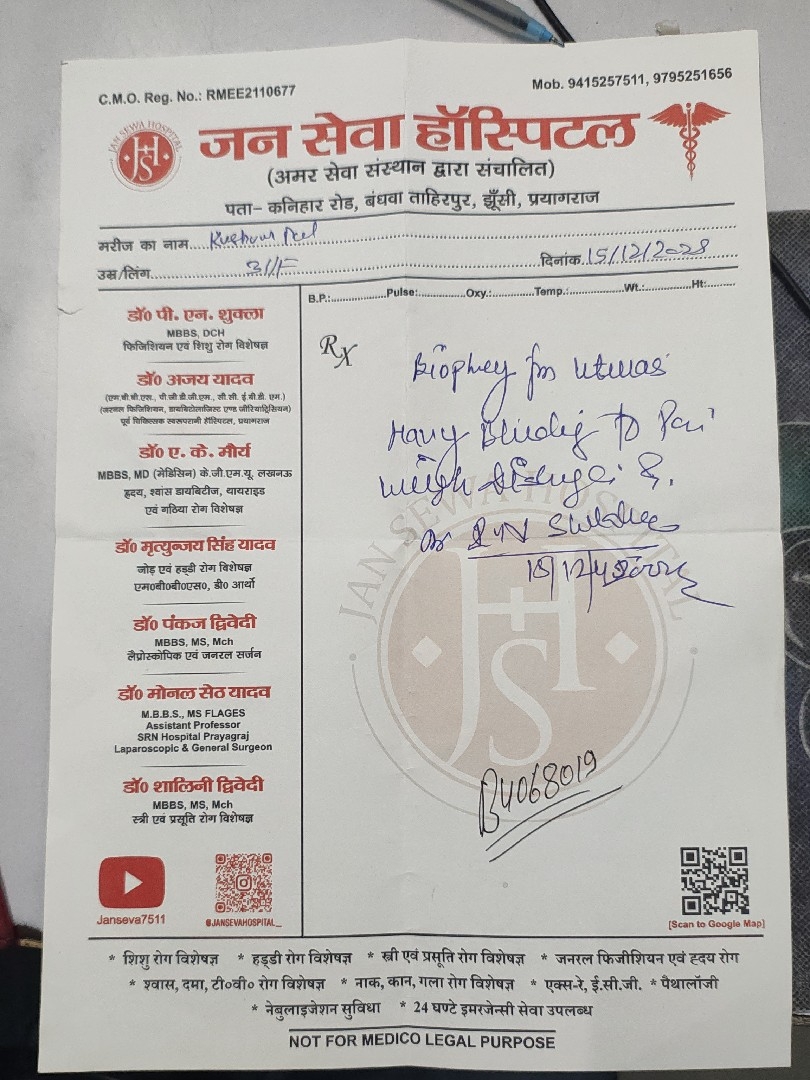 C.M.O. Reg. No.: RMEE2110677
Mob. 9415257511, 9795251656
JAN SEWA HOSPITAL
JHS
जन सेवा हॉस्पिटल
(अमर सेवा संस्थान द्वारा संचालित)
पता- कनिहार रोड, बंधवा ताहिरपुर, झूँसी, प्रयागराज
मरीज का नाम
दिनांक 15/12/2028
उम्र/लिंग 31/F
B.P.: Pulse: Oxy.: Temp.: Wt.: Ht:
डॉ० पी. एन. शुक्ला
MBBS, DCH
फिजिशियन एवं शिशु रोग विशेषज्ञ
डॉ० अजय यादव
(एम.बी.बी.एस., पी.जी.डी.जी.एम., सी.सी. ई.बी.डी. एम.)
(जनरल फिजिशियन, डायबिटोलाजिस्ट एण्ड जीरियाट्रिसियन)
पूर्व चिकित्सक स्वरूपरानी हॉस्पिटल, प्रयागराज
डॉ० ए. के. मौर्य
MBBS, MD (मेडिसिन) के.जी.एम.यू. लखनऊ
हृदय, श्वांस डायबिटीज, थायराइड
एवं गठिया रोग विशेषज्ञ
डॉ० मृत्युन्जय सिंह यादव
जोड़ एवं हड्डी रोग विशेषज्ञ
एम०बी०बी०एस०, डी० आर्थो
डॉ० पंकज द्विवेदी
MBBS, MS, Mch
लैप्रोस्कोपिक एवं जनरल सर्जन
डॉ० मोनल सेठ यादव
M.B.B.S., MS FLAGES
Assistant Professor
SRN Hospital Prayagraj
Laparoscopic & General Surgeon
डॉ० शालिनी द्विवेदी
MBBS, MS, Mch
स्त्री एवं प्रसूति रोग विशेषज्ञ
Rx
Biophey for uterus
JAN SEWA HOSPITAL
JHS
B4068019
Janseva7511
@JANSEVAHOSPITAL_
[Scan to Google Map]
* शिशु रोग विशेषज्ञ * हड्डी रोग विशेषज्ञ * स्त्री एवं प्रसूति रोग विशेषज्ञ * जनरल फिजीशियन एवं ह्दय रोग
* श्वास, दमा, टी०वी० रोग विशेषज्ञ * नाक, कान, गला रोग विशेषज्ञ * एक्स-रे, ई.सी.जी. * पैथालॉजी
* नेबुलाइजेशन सुविधा * 24 घण्टे इमरजेन्सी सेवा उपलब्ध
NOT FOR MEDICO LEGAL PURPOSE